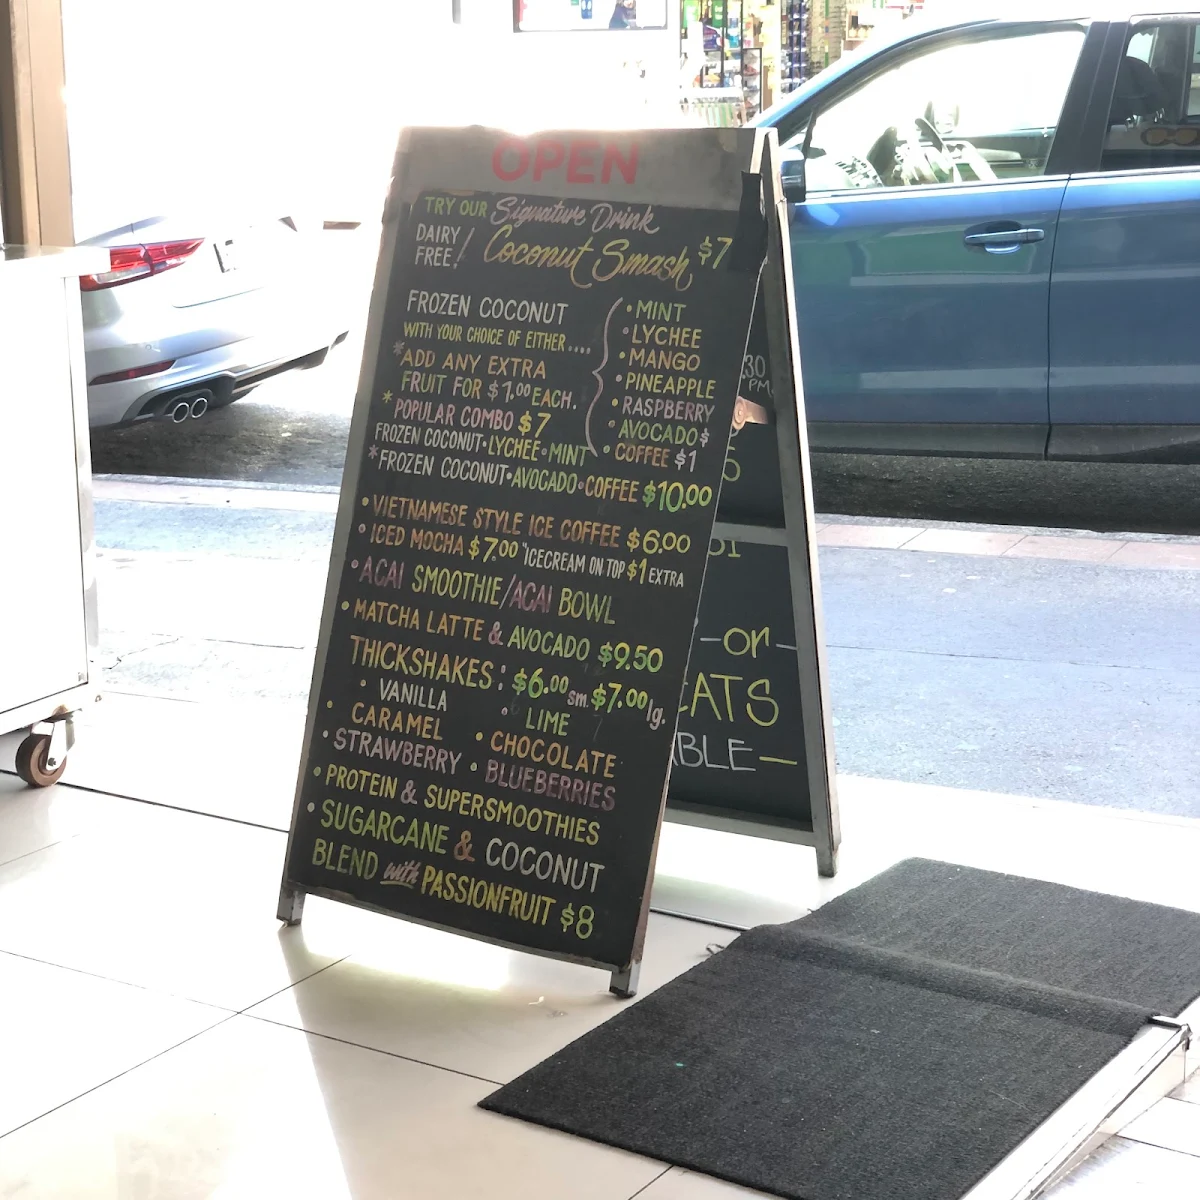 OPEN
TRY OUR Signature Drink
DAIRY FREE! Coconut Smash $7
FROZEN COCONUT
WITH YOUR CHOICE OF EITHER....
*ADD ANY EXTRA
FRUIT FOR $1.00 EACH.
• MINT
• LYCHEE
• MANGO
• PINEAPPLE
• RASPBERRY
• AVOCADO $
• COFFEE $1
* POPULAR COMBO $7
FROZEN COCONUT • LYCHEE • MINT
*FROZEN COCONUT • AVOCADO • COFFEE $10.00
• VIETNAMESE STYLE ICE COFFEE $6.00
• ICED MOCHA $7.00 "ICECREAM ON TOP $1 EXTRA
• ACAI SMOOTHIE/ACAI BOWL
• MATCHA LATTE & AVOCADO $9.50
THICKSHAKES: $6.00 sm. $7.00 lg.
• VANILLA • LIME
• CARAMEL • CHOCOLATE
• STRAWBERRY • BLUEBERRIES
• PROTEIN & SUPERSMOOTHIES
• SUGARCANE & COCONUT
BLEND with PASSIONFRUIT $8
30
PM
-or-
EATS
BLE—